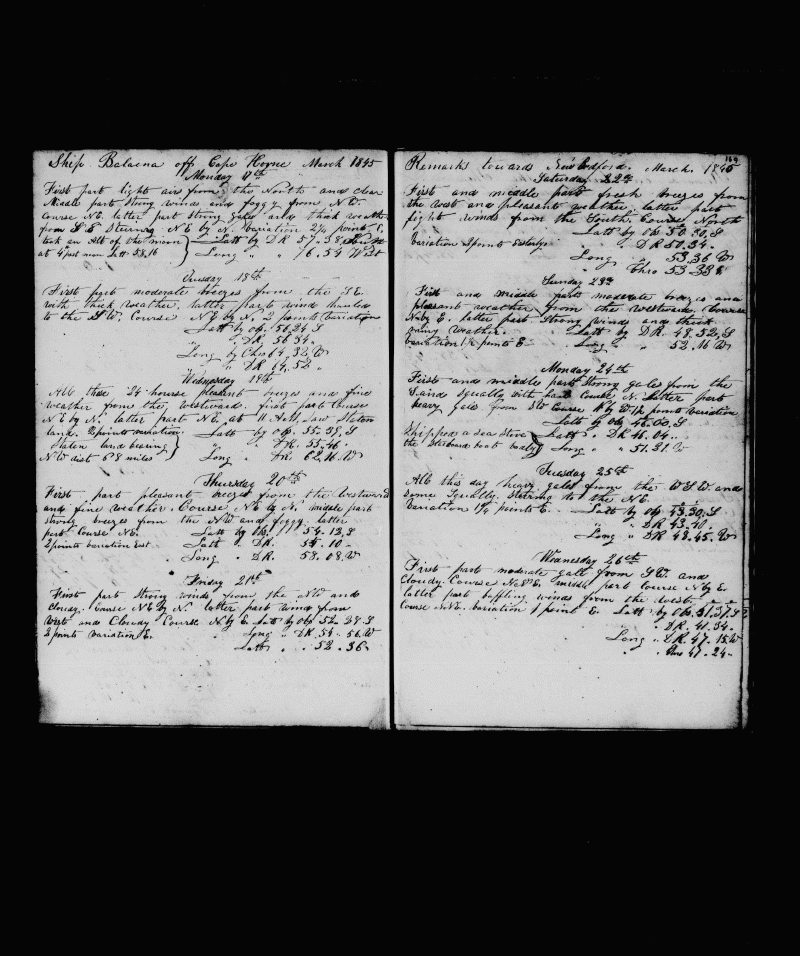 Ship Balaena off Cape Horne March 1845
Monday 17th
First part light airs from the North and clear
Middle part Strong winds and foggy from N W.
Course NE. latter part Strong gales and thick weather
from S E Steering N E by N. Variation 2 1/4 points E.
took an Alt of the moon Latt by DR 57.38
at 4 past noon Latt 58.16 Long " " 76.54 West
Tuesday 18th
First part moderate breezes from the SE.
with thick weather. latter part wind hauled
to the S W. Course N E by N. 2 points Variation
Latt by Ob. 56.24 S
" " DR 56 34 "
Long by Chro 64.32, W
" " DR 64.52 "
Wednesday 19th
All these 24 hourse pleasant breezes and fine
weather from the Westward. first part Course
N E by N. latter part NE. at 11 AM, Saw Staten
land. 2 points variation. Latt by ob. 55.39, S
Staten land bearing " " DR. 55.46 "
N W dist 68 miles Long " DR 62.16. W
Thursday 20th
First part pleasant breezes from the Westward
and fine weather. Course N E by N. middle part
strong breezes from the N.W and foggy. latter
part Course NE. Latt by Ob. 54.13, S
2 points variation East. Latt " DR. 54.10 "
Long " DR. 58.08. W
Friday 21st
First part Strong winds from the NW and
Cloudy. Course NE by N. latter part wind from
West and Cloudy Course N. by E. Latt by Ob 52.28. S
2 points variation E. Long " DR. 54.56. W
Latt " " 52.36
164
Remarks towards New Bedford. March. 1845
Saturday 22nd
First and middle part fresh breezes from
the West and pleasant weather. latter part
light winds from the South. Course North
Latt by Ob. 50.30, S
Variation 2 points Easterly " " DR 50.34 "
Long " " 53.36 W
" " Chro 53.33
Sunday 23rd
First and middle part moderate breezes and
pleasant weather from the Westward. Course
N by E. latter part Strong winds and thick
rainy weather. Latt by DR. 48.52, S
variation 1 1/2 points E Long " " 52.16 W
Monday 24th
First and middle part Strong gales from the
S. and squally with hail Course N. latter part
heavy gale from SW Course N by W 1 1/2 points variation
Latt by ob 46.00, S
Shipped a sea Stove Latt " DR 46.04 "
the Starboard boat badly Long " " 51.31. W
Tuesday 25th
All this day heavy gales from the W S W. and
some Squally. Steering to the N E.
Variation 1 1/4 points E. Latt by ob 43.30, S
" " DR 43.40 "
Long " DR 48.45. W
Wednesday 26th
First part moderate gale from S W. and
Cloudy. Course N.N.E. middle part Course N by E.
latter part baffling winds from the West.
Course NNE. variation 1 point E. Latt by Ob. 41.37, S
" " DR. 41.34 "
Long " DR. 47.15, W
" " Chro 47.24 "